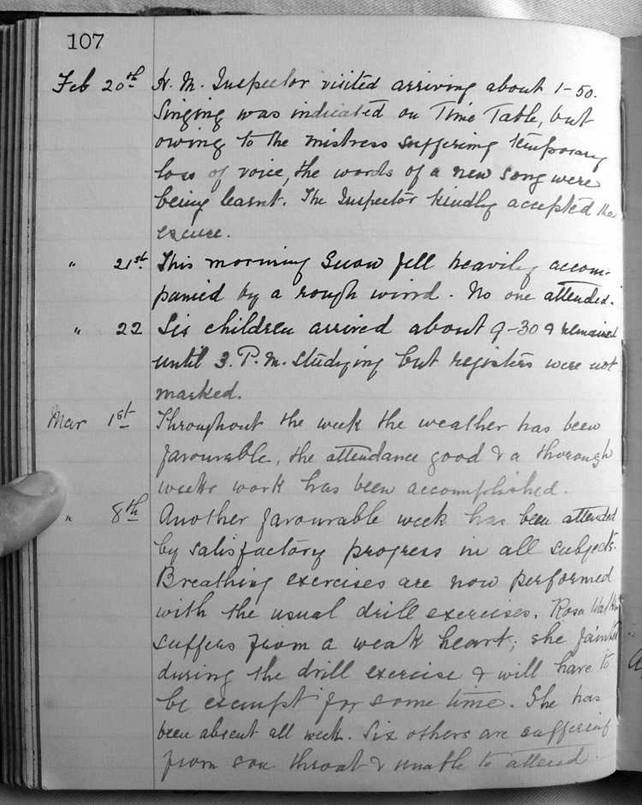 107
Feb 20th H. M. Inspector visited arriving about 1-50.
Singing was indicated on Time Table, but
owing to the mistress suffering temporary
loss of voice, the words of a new song were
being learnt. The Inspector kindly accepted the
excuse.
" 21st This morning Snow fell heavily accom-
panied by a rough wind. No one attended.
" 22 Six children arrived about 9-30 & remained
until 3. P.M. studying but registers were not
marked.
Mar 1st Throughout the week the weather has been
favourable, the attendance good & a thorough
weeks work has been accomplished.
" 8th Another favourable week has been attended
by satisfactory progress in all subjects.
Breathing exercises are now performed
with the usual drill exercises. Rosa
suffers from a weak heart; she fainted
during the drill exercise & will have to
be exempt for some time. She has
been absent all week. Six others are suffering
from sore throat & unable to attend.